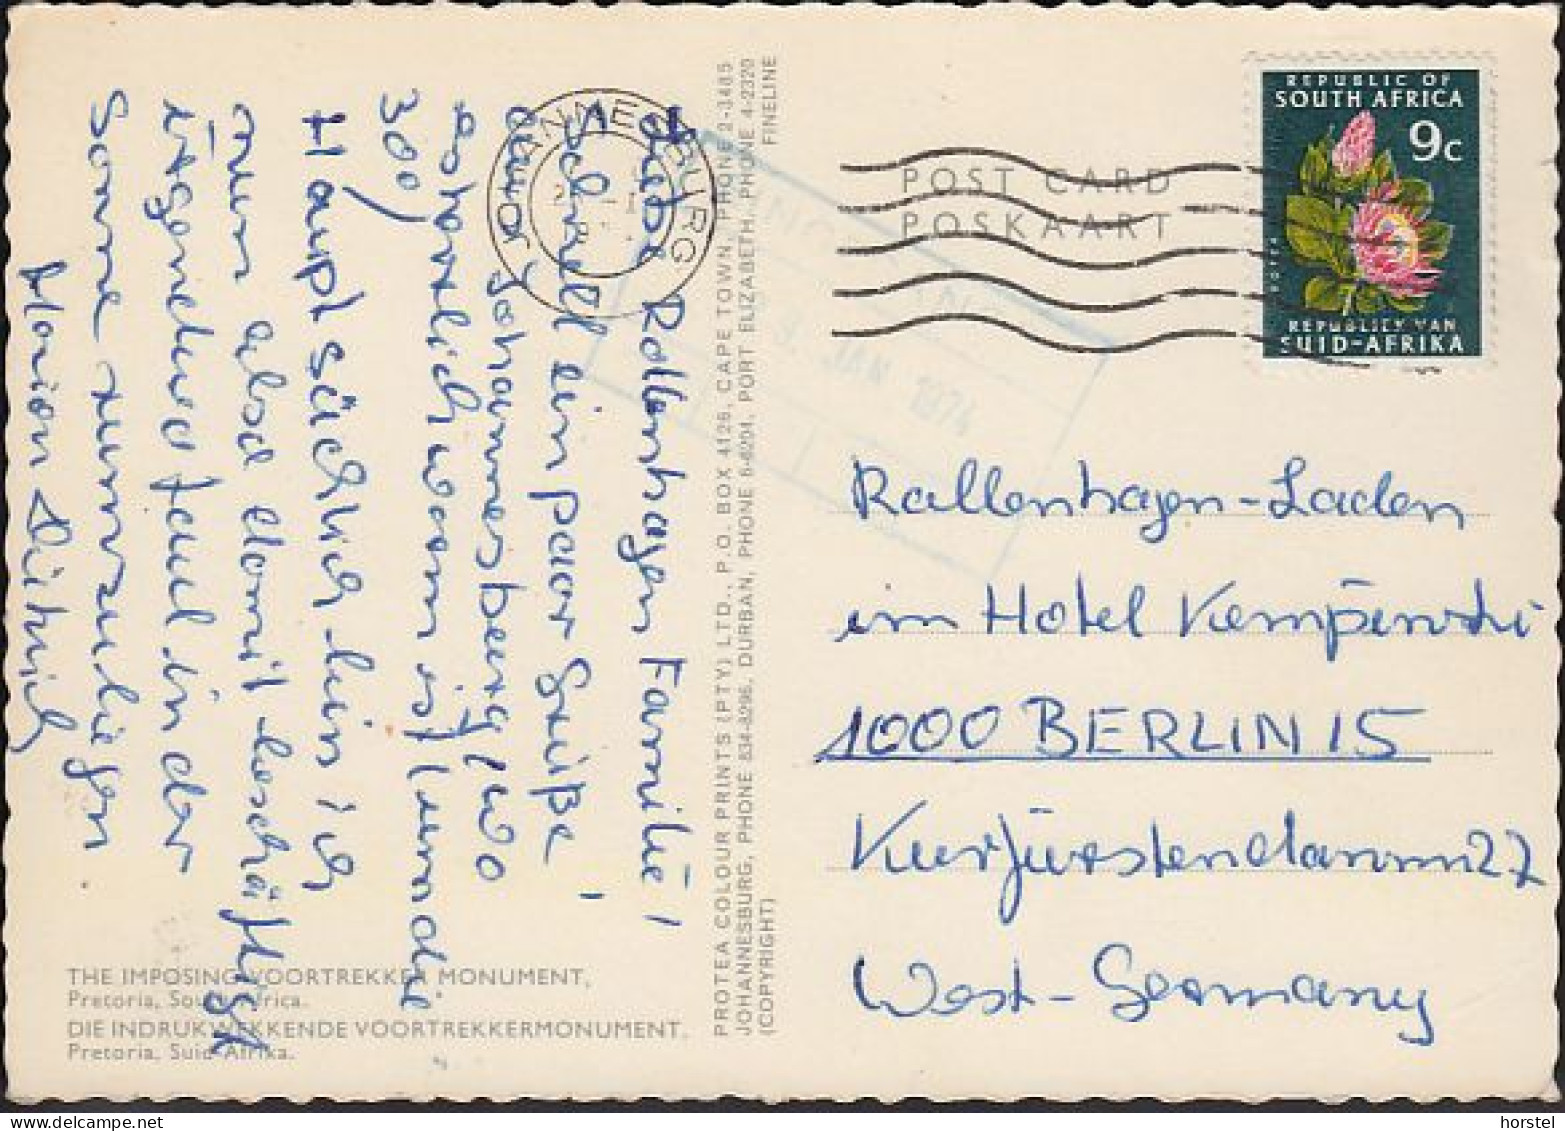 Liebe Rollenhagen Familie!
Schnell ein paar Grüße
aus Johannesburg, wo
es herrlich warm ist (um die
30°)
Hauptsächlich bin ich
nun also damit beschäftigt
irgendwo faul in der
Sonne rumzuliegen.
Marion
THE IMPOSING VOORTREKKER MONUMENT,
Pretoria, South Africa.
DIE INDRUKWEKKENDE VOORTREKKERMONUMENT.
Pretoria, Suid-Afrika.
PROTEA COLOUR PRINTS (PTY) LTD., P.O. BOX 4126, CAPE TOWN, PHONE 2-3485
JOHANNESBURG, PHONE 834-8296, DURBAN, PHONE 6-6204, PORT ELIZABETH, PHONE 4-2320
(COPYRIGHT) FINELINE
POST CARD
POSKAART
REPUBLIC OF
SOUTH AFRICA
9c
PROTEA
REPUBLIEK VAN
SUID-AFRIKA
JAN 1974
Rollenhagen-Laden
im Hotel Kempinski
1000 BERLIN 15
Kurfürstendamm 27
West-Germany
horstel
© www.delcampe.net